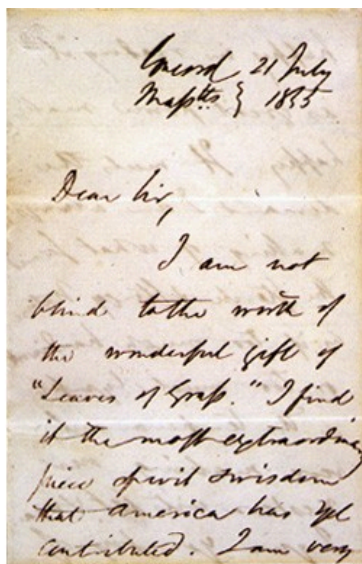 Concord 21 July
Masstts } 1855
Dear Sir,
I am not
blind to the worth of
the wonderful gift of
"Leaves of Grass." I find
it the most extraordinary
piece of wit & wisdom
that America has yet
contributed. I am very